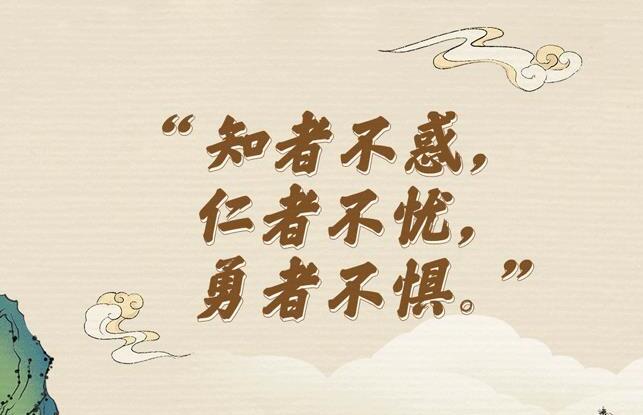 “知者不惑，
仁者不忧，
勇者不惧。”